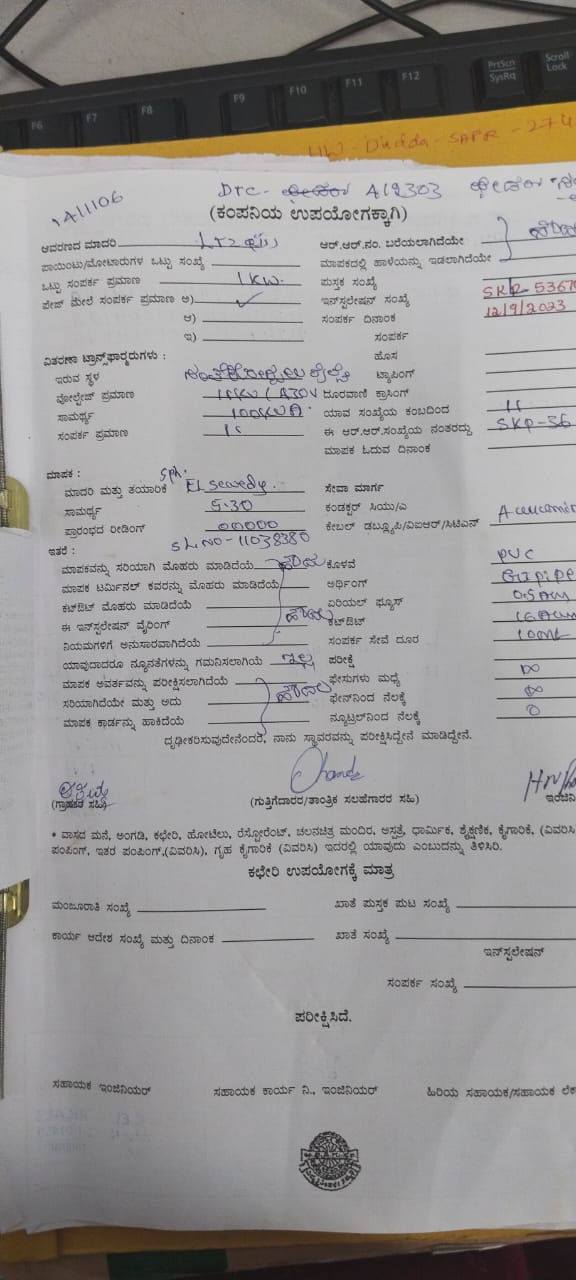 F6 F7 F8 F9 F10 F11 F12 PrtScn SysRq Scroll Lock
Dudda - SAPR - 274
1411106 DTC - A12303
(ಕಂಪನಿಯ ಉಪಯೋಗಕ್ಕಾಗಿ)
ಆವರಣದ ಮಾದರಿ ಆರ್.ಆರ್.ನಂ. ಬರೆಯಲಾಗಿದೆಯೇ
ಪಾಯಿಂಟು/ಮೋಟಾರುಗಳ ಒಟ್ಟು ಸಂಖ್ಯೆ ಮಾಪಕದಲ್ಲಿ ಹಾಳೆಯನ್ನು ಇಡಲಾಗಿದೆಯೇ
ಒಟ್ಟು ಸಂಪರ್ಕ ಪ್ರಮಾಣ 1KW. ಪುಸ್ತಕ ಸಂಖ್ಯೆ
ಪೇಜ್ ಮೇಲೆ ಸಂಪರ್ಕ ಪ್ರಮಾಣ ಅ) ✓ ಇನ್‌ಸ್ಟಲೇಷನ್ ಸಂಖ್ಯೆ
ಆ) ಸಂಪರ್ಕ ದಿನಾಂಕ 12/9/2023
ಇ) ಸಂಪರ್ಕ
ವಿತರಣಾ ಟ್ರಾನ್ಸ್‌ಫಾರ್ಮರುಗಳು : ಹೊಸ
ಇರುವ ಸ್ಥಳ ಟ್ಯಾಪಿಂಗ್
ವೋಲ್ಟೇಜ್ ಪ್ರಮಾಣ ದೂರವಾಣಿ ಕ್ರಾಸಿಂಗ್
ಸಾಮರ್ಥ್ಯ 100KVA ಯಾವ ಸಂಖ್ಯೆಯ ಕಂಬದಿಂದ
ಸಂಪರ್ಕ ಪ್ರಮಾಣ ಈ ಆರ್.ಆರ್.ಸಂಖ್ಯೆಯ ನಂತರದ್ದು SKP-36
ಮಾಪಕ ಓದುವ ದಿನಾಂಕ
ಮಾಪಕ : Sph.
ಮಾದರಿ ಮತ್ತು ತಯಾರಿಕೆ Elsewedy. ಸೇವಾ ಮಾರ್ಗ
ಸಾಮರ್ಥ್ಯ 5-30 ಕಂಡಕ್ಟರ್ ಸಿಯು/ಎ
ಪ್ರಾರಂಭದ ರೀಡಿಂಗ್ 00000 ಕೇಬಲ್ ಡಬ್ಲ್ಯೂಪಿ/ವಿಐಆರ್/ಸಿಟಿಎನ್
ಇತರೆ : SL.NO-11038380
ಮಾಪಕವನ್ನು ಸರಿಯಾಗಿ ಮೊಹರು ಮಾಡಿದೆಯೆ ಹೌದು ಕೊಳವೆ PVC
ಮಾಪಕ ಟರ್ಮಿನಲ್ ಕವರನ್ನು ಮೊಹರು ಮಾಡಿದೆಯೆ ಅರ್ಥಿಂಗ್ GI pipe
ಕಟ್‌ಔಟ್ ಮೊಹರು ಮಾಡಿದೆಯೆ ಏರಿಯಲ್ ಫ್ಯೂಸ್
ಈ ಇನ್‌ಸ್ಟಲೇಷನ್ ವೈರಿಂಗ್ ಹೌದು ಕಟ್‌ಔಟ್
ನಿಯಮಗಳಿಗೆ ಅನುಸಾರವಾಗಿದೆಯೆ ಸಂಪರ್ಕ ಸೇವೆ ದೂರ
ಯಾವುದಾದರೂ ನ್ಯೂನತೆಗಳನ್ನು ಗಮನಿಸಲಾಗಿಯೆ ಇಲ್ಲ ಪರೀಕ್ಷೆ
ಮಾಪಕ ಅವರ್ತವನ್ನು ಪರೀಕ್ಷಿಸಲಾಗಿದೆಯೆ ಫೇಸುಗಳು ಮಧ್ಯೆ ∞
ಸರಿಯಾಗಿದೆಯೇ ಮತ್ತು ಅದು ಹೌದು ಫೇಸ್‌ನಿಂದ ನೆಲಕ್ಕೆ ∞
ಮಾಪಕ ಕಾರ್ಡನ್ನು ಹಾಕಿದೆಯೆ ನ್ಯೂಟ್ರಲ್‌ನಿಂದ ನೆಲಕ್ಕೆ 0
ದೃಢೀಕರಿಸುವುದೇನೆಂದರೆ, ನಾನು ಸ್ಥಾವರವನ್ನು ಪರೀಕ್ಷಿಸಿದ್ದೇನೆ ಮಾಡಿದ್ದೇನೆ.
(ಗ್ರಾಹಕರ ಸಹಿ) (ಗುತ್ತಿಗೆದಾರರ/ತಾಂತ್ರಿಕ ಸಲಹೆಗಾರರ ಸಹಿ)
* ವಾಸದ ಮನೆ, ಅಂಗಡಿ, ಕಛೇರಿ, ಹೋಟೆಲು, ರೆಸ್ಟೋರೆಂಟ್, ಚಲನಚಿತ್ರ ಮಂದಿರ, ಅಸ್ಪತ್ರೆ, ಧಾರ್ಮಿಕ, ಶೈಕ್ಷಣಿಕ, ಕೈಗಾರಿಕೆ, (ವಿವರಿಸಿ
ಪಂಪಿಂಗ್, ಇತರ ಪಂಪಿಂಗ್,(ವಿವರಿಸಿ), ಗೃಹ ಕೈಗಾರಿಕೆ (ವಿವರಿಸಿ) ಇದರಲ್ಲಿ ಯಾವುದು ಎಂಬುದನ್ನು ತಿಳಿಸಿರಿ.
ಕಛೇರಿ ಉಪಯೋಗಕ್ಕೆ ಮಾತ್ರ
ಮಂಜೂರಾತಿ ಸಂಖ್ಯೆ ಖಾತೆ ಪುಸ್ತಕ ಪುಟ ಸಂಖ್ಯೆ
ಕಾರ್ಯ ಆದೇಶ ಸಂಖ್ಯೆ ಮತ್ತು ದಿನಾಂಕ ಖಾತೆ ಸಂಖ್ಯೆ
ಇನ್‌ಸ್ಟಲೇಷನ್
ಸಂಪರ್ಕ ಸಂಖ್ಯೆ
ಪರೀಕ್ಷಿಸಿದೆ.
ಸಹಾಯಕ ಇಂಜಿನಿಯರ್ ಸಹಾಯಕ ಕಾರ್ಯ ನಿ., ಇಂಜಿನಿಯರ್ ಹಿರಿಯ ಸಹಾಯಕ/ಸಹಾಯಕ ಲೆಕ